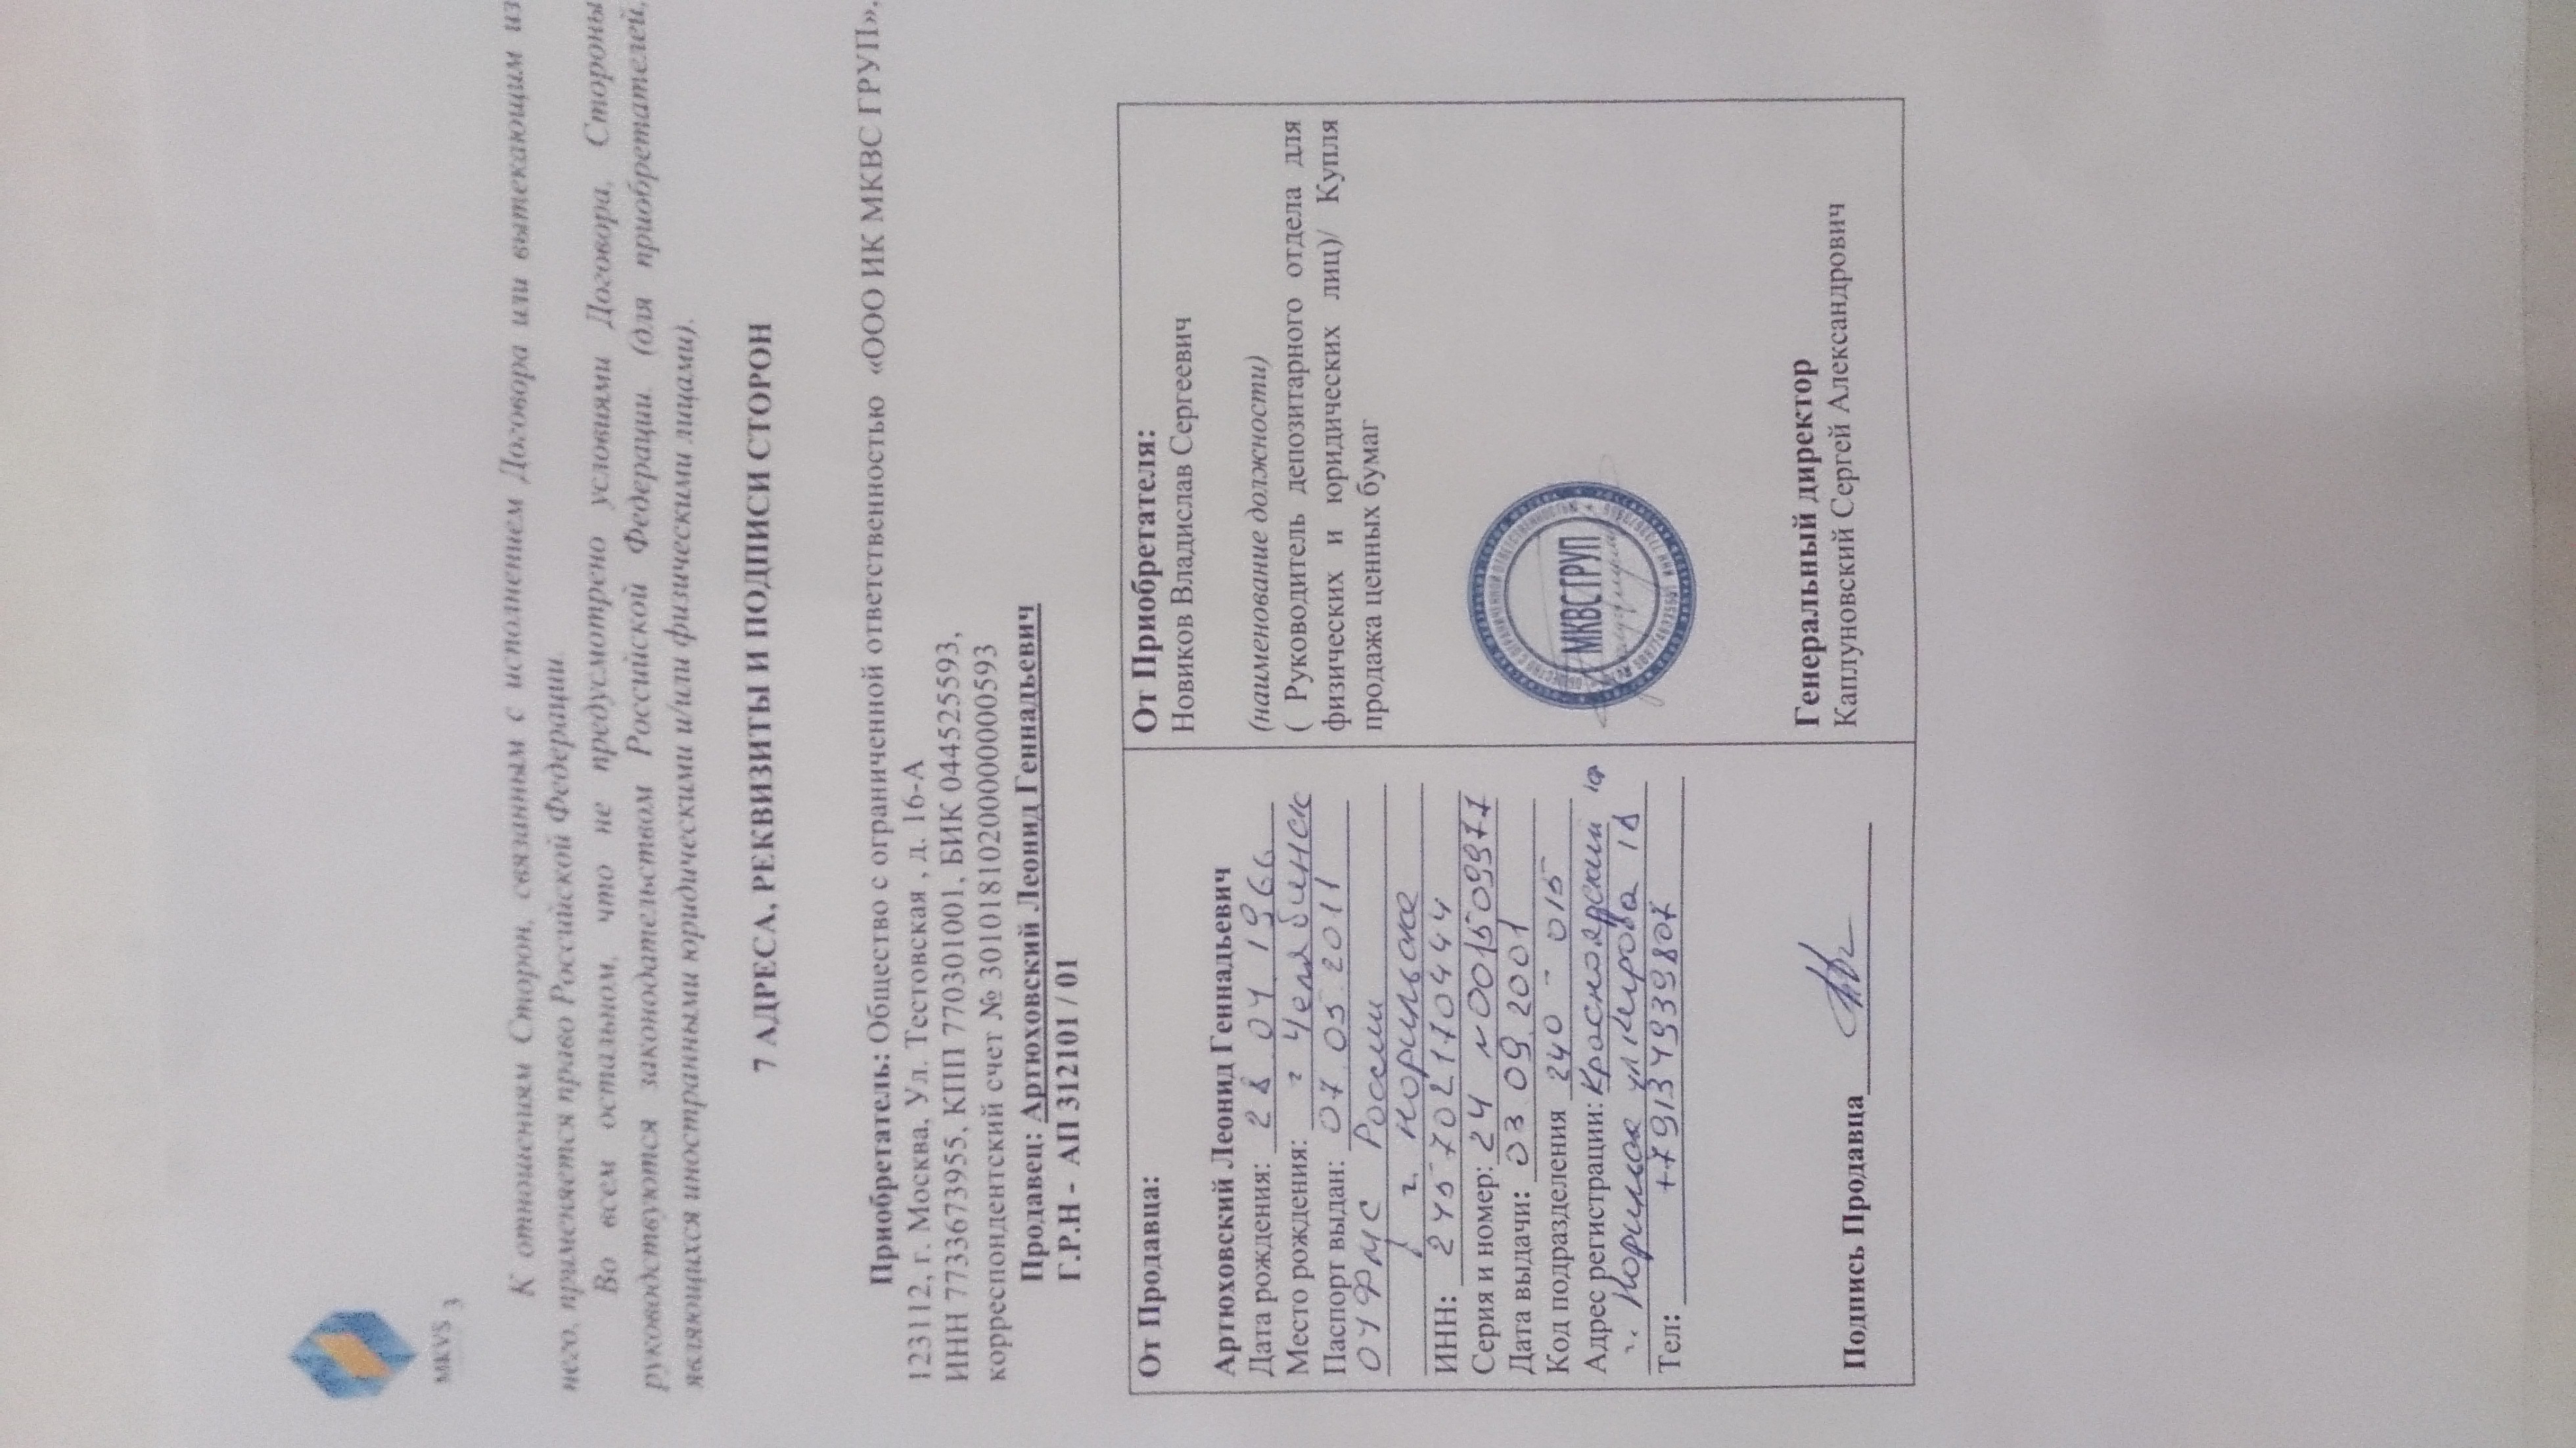 MKVS 3
К отношениям Сторон, связанным с исполнением Договора или вытекающим из
него, применяется право Российской Федерации.
Во всем остальном, что не предусмотрено условиями Договора, Стороны
руководствуются законодательством Российской Федерации. (для приобретателей,
являющихся иностранными юридическими и/или физическими лицами).
7 АДРЕСА, РЕКВИЗИТЫ И ПОДПИСИ СТОРОН
Приобретатель: Общество с ограниченной ответственностью «ООО ИК МКВС ГРУП»,
123112, г. Москва, Ул. Тестовская , д. 16-А
ИНН 7733673955, КПП 770301001, БИК 044525593,
корреспондентский счет № 30101810200000000593
Продавец: Артюховский Леонид Геннадьевич
Г.Р.Н - АП 312101 / 01
От Продавца:
Артюховский Леонид Геннадьевич
Дата рождения: 28.04 1966
Место рождения: г Челябинск
Паспорт выдан: 07.05.2011
ОУФМС России
в г. Норильске
ИНН: 245702170444
Серия и номер: 24 N00150997
Дата выдачи: 03 09.2001
Код подразделения 240 - 015
Адрес регистрации: Красноярский
г. Норильск ул Кирова
Тел: +79134939807
Подпись Продавца
От Приобретателя:
Новиков Владислав Сергеевич
(наименование должности)
( Руководитель депозитарного отдела для
физических и юридических лиц)/ Купля
продажа ценных бумаг
МКВСГРУП
Генеральный директор
Каплуновский Сергей Александрович